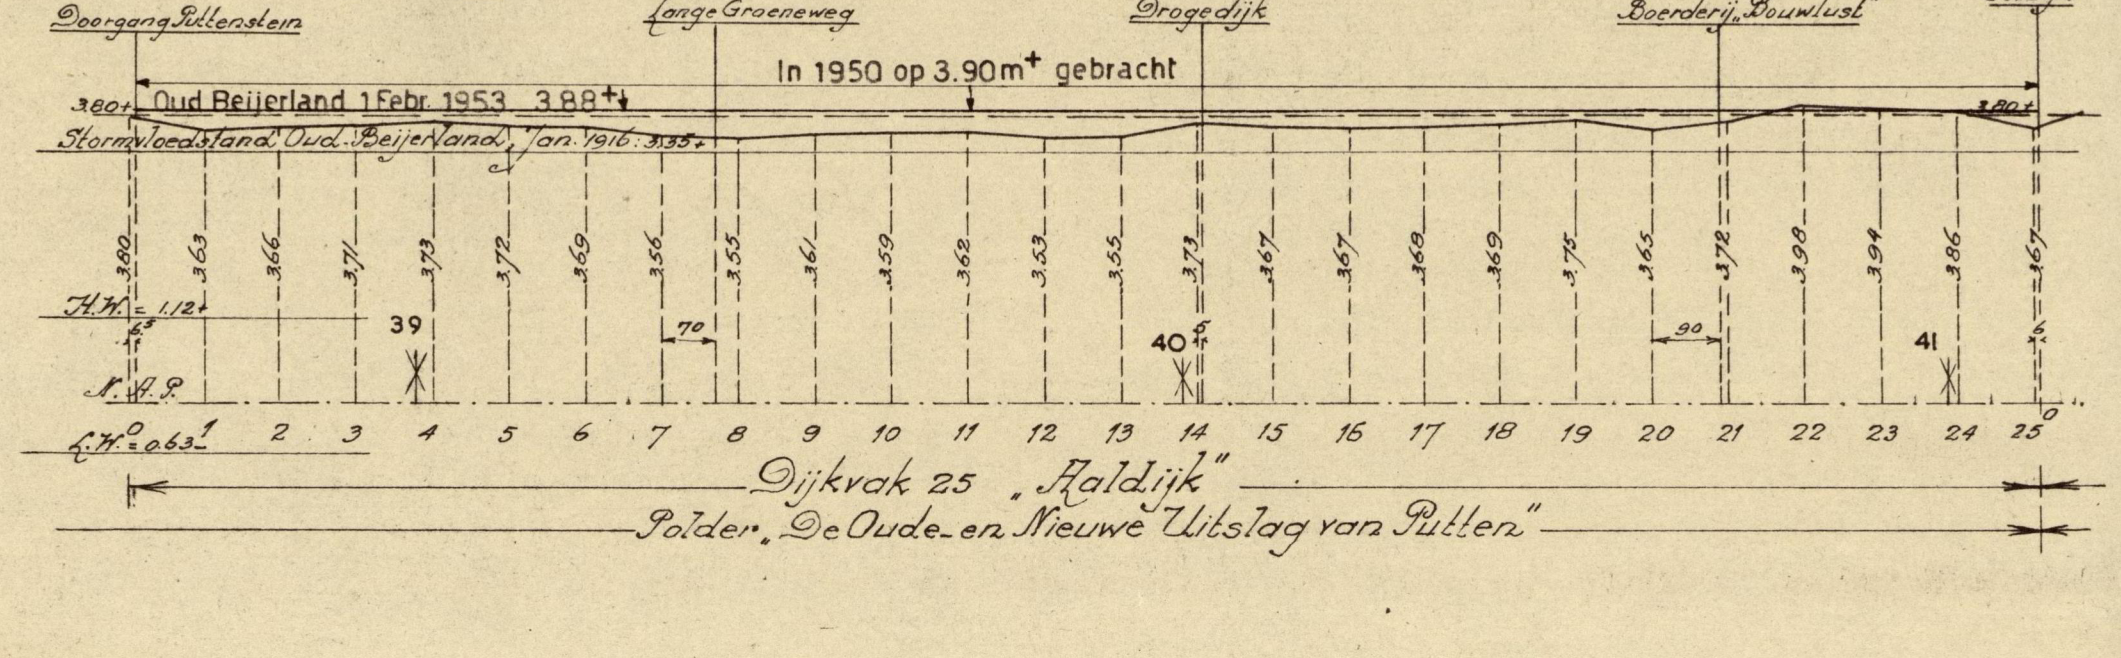 Doorgang Puttenstein
Lange Groeneweg
Drogedijk
Boerderij „Bouwlust"
In 1950 op 3.90m+ gebracht
3.80+
Oud Beijerland 1 Febr. 1953 3.88+
3.80+
Stormvloedstand Oud-Beijerland, Jan. 1916: 3.35+
3.80 3.63 3.66 3.71 3.73 3.72 3.69 3.56 3.55 3.61 3.59 3.62 3.53 3.55 3.73 3.67 3.67 3.68 3.69 3.75 3.65 3.72 3.98 3.94 3.86 3.67
H.W. = 1.12+
6.5 39 70 40 5 90 41 6
N.A.P.
0 1 2 3 4 5 6 7 8 9 10 11 12 13 14 15 16 17 18 19 20 21 22 23 24 25 0
L.W. = 0.63-
Dijkvak 25 „Aaldijk"
Polder „De Oude- en Nieuwe Uitslag van Putten"